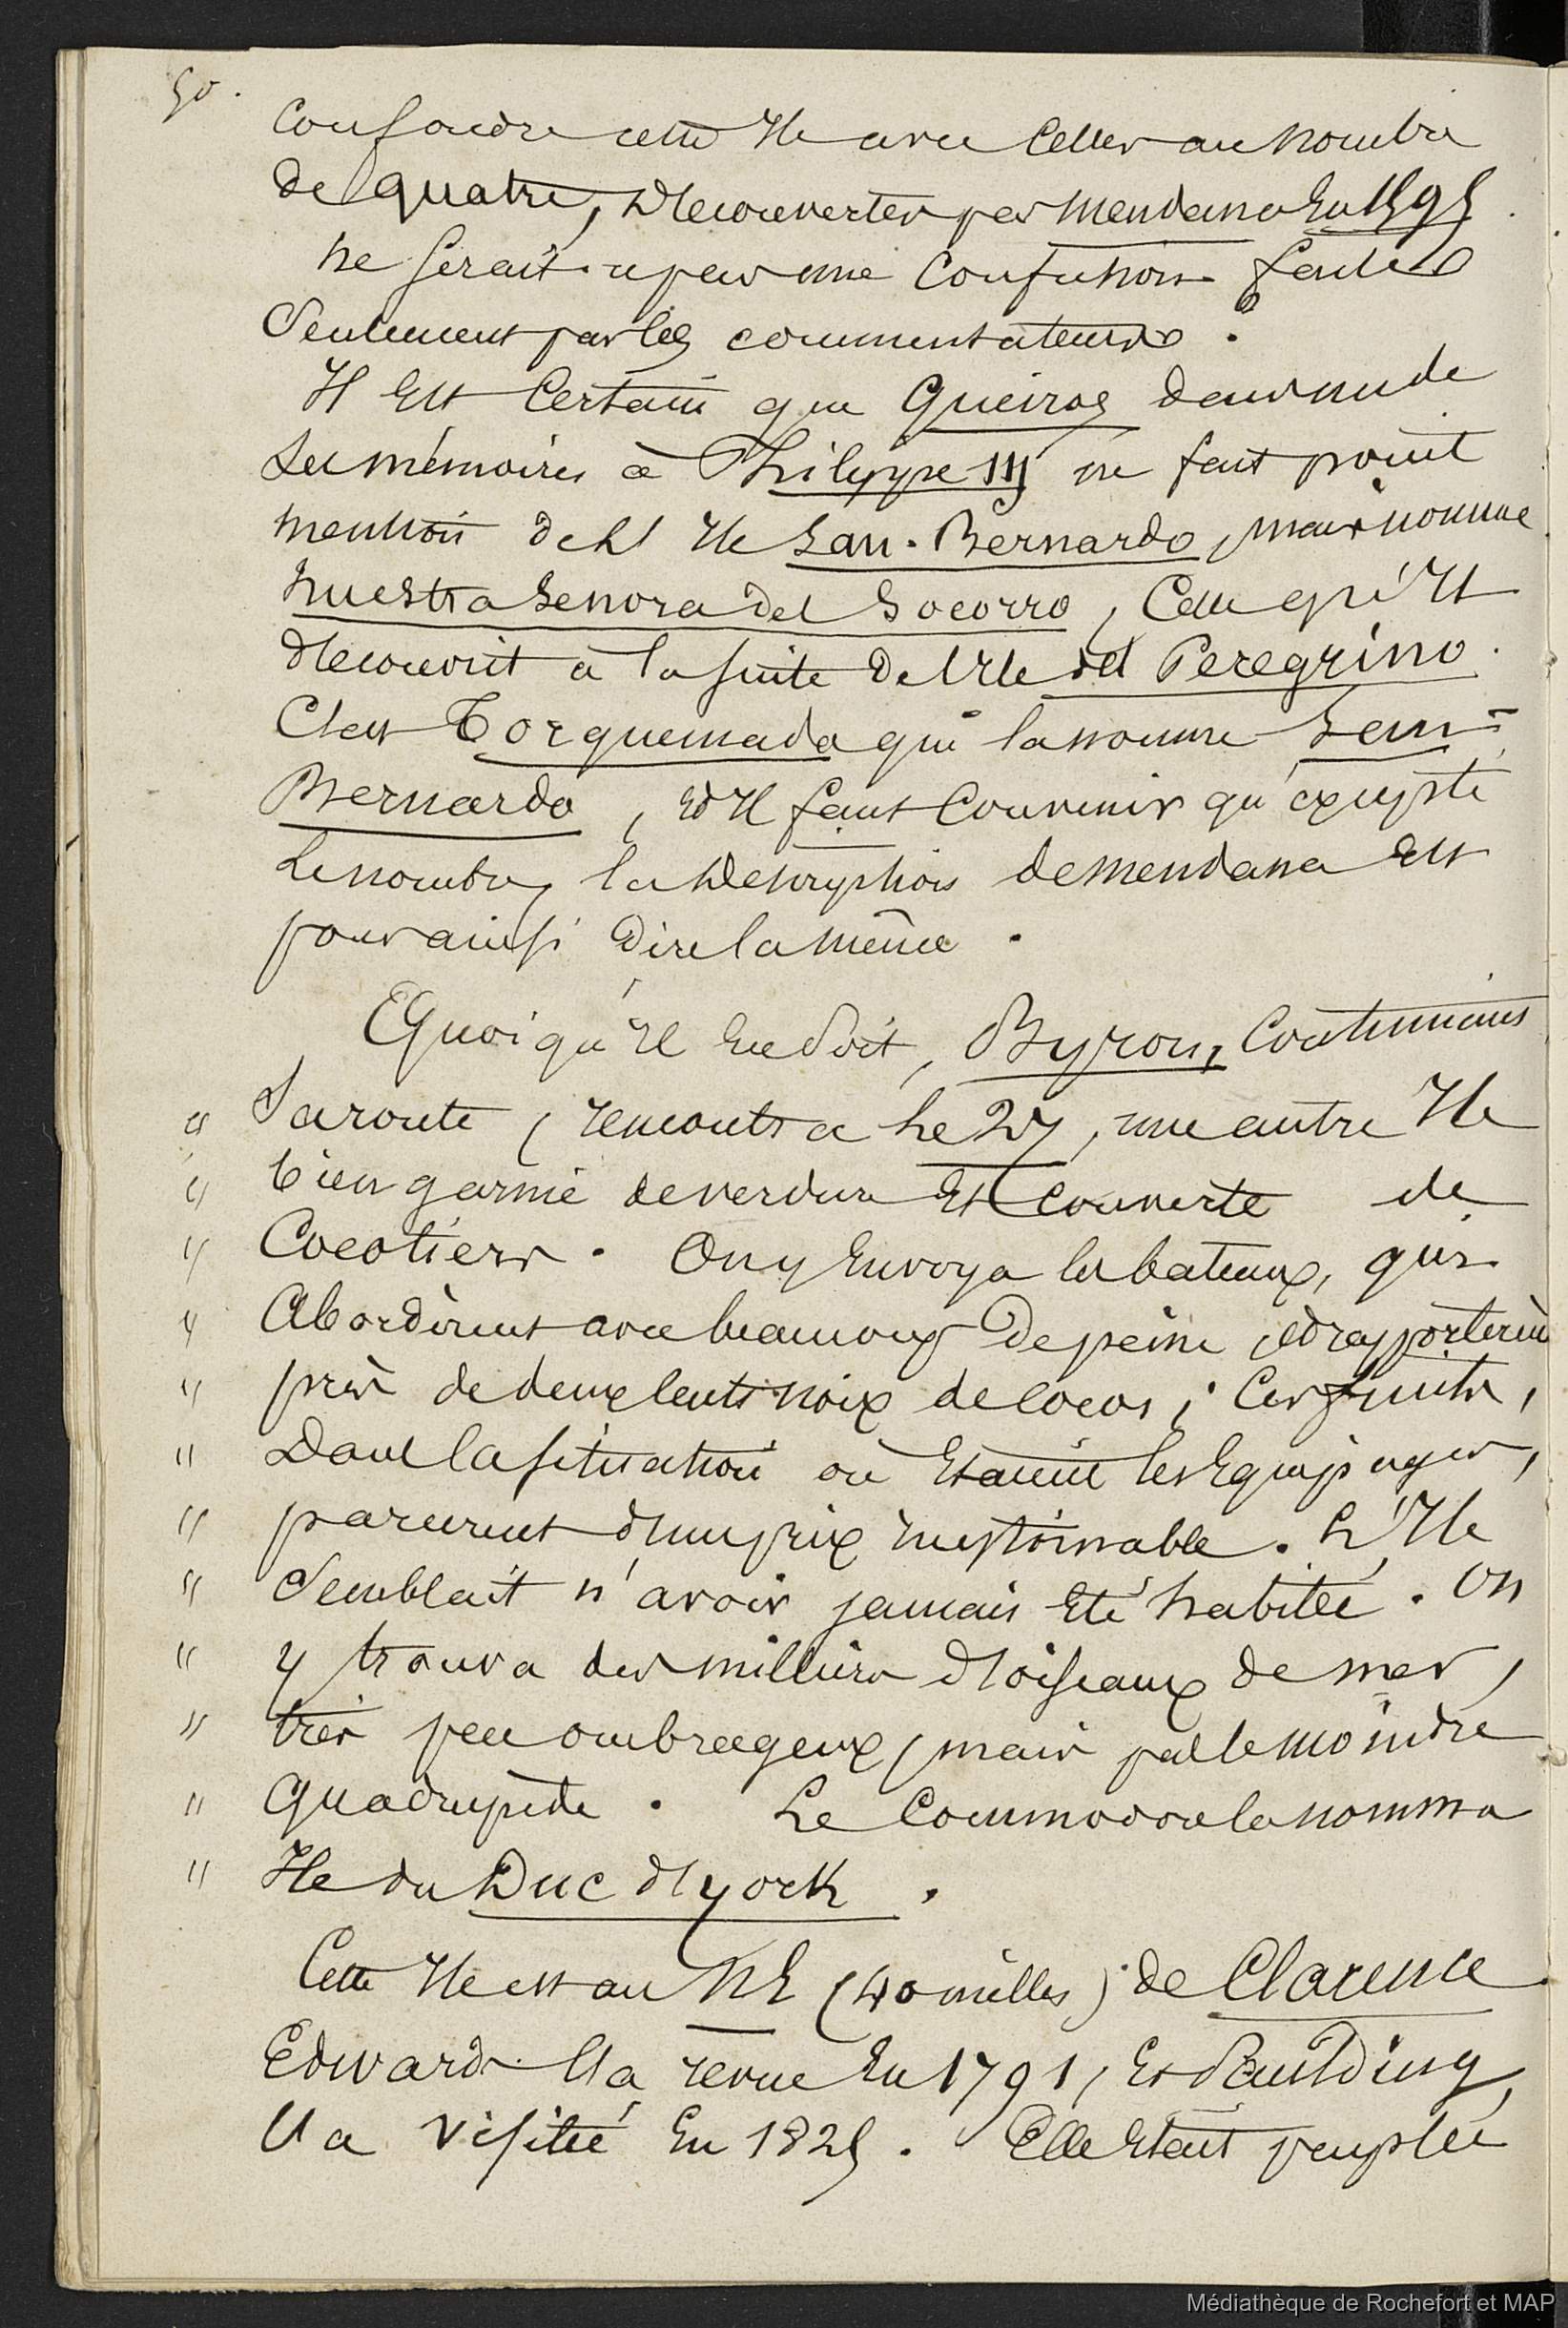 50.
Confondre cette Ile avec Celles au nombre
de quatre, découvertes par Mendana En 1595.
Ne serait-ce pas une Confusion faite
Seulement par les commentateurs.
Il Est Certain que Queiros dans un de
Ses mémoires à Philippe III ne fait point
mention de l'Ile San-Bernardo, mais nomme
Nuestra Senora del Socorro, Celle qu'Il
découvrit à la suite de l'Ile del Peregrino.
C'est Torquemada qui la nomme San-
Bernardo, Et Il faut Convenir qu'excepté
Le nombre, la Description de Mendana Est
pour ainsi dire la même.
Quoiqu'Il En Soit, Byron, Continuant
" Sa route, rencontra Le 27, une autre Ile
" bien garnie de verdure Et Couverte de
" Cocotiers. On y Envoya les bateaux, qui
" Abordèrent avec beaucoup de peine, Et rapportèrent
" près de deux cents noix de Cocos; Ces fruits,
" Dans la situation où Etaient les Equipages,
" parurent d'un prix inestimable. L'Ile
" Semblait n'avoir jamais Eté habitée. On
" y trouva des milliers d'oiseaux de mer,
" très peu ombrageux, mais pas le moindre
" Quadrupède. Le Commodore la nomma
" Ile du Duc d'York.
Cette Ile est au NE (40 milles) de Clarence.
Edwards l'a revue En 1791, Et Paulding
l'a visitée En 1825. Elle Etait peuplée
Médiathèque de Rochefort et MAP